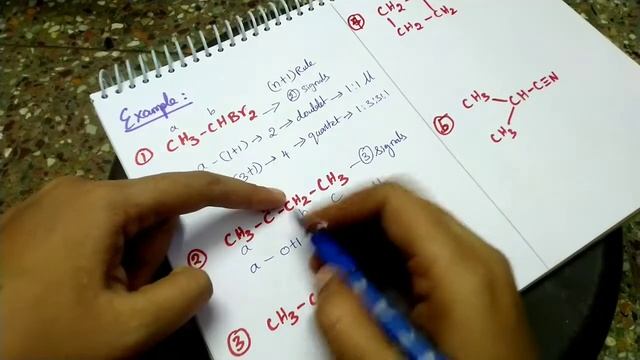 Example:
(n+1) Rule
a b
① CH3-CHBr2 → ② signals
a - (1+1) → 2 → doublet → 1:1
(3+1) → 4 → quartet → 1:3:3:1
② CH3-C-CH2-CH3 - ③ signals
a b c
a - 0+1
③ CH3-C
④ CH2
CH2-CH2
⑤ CH3
CH-C≡N
CH3